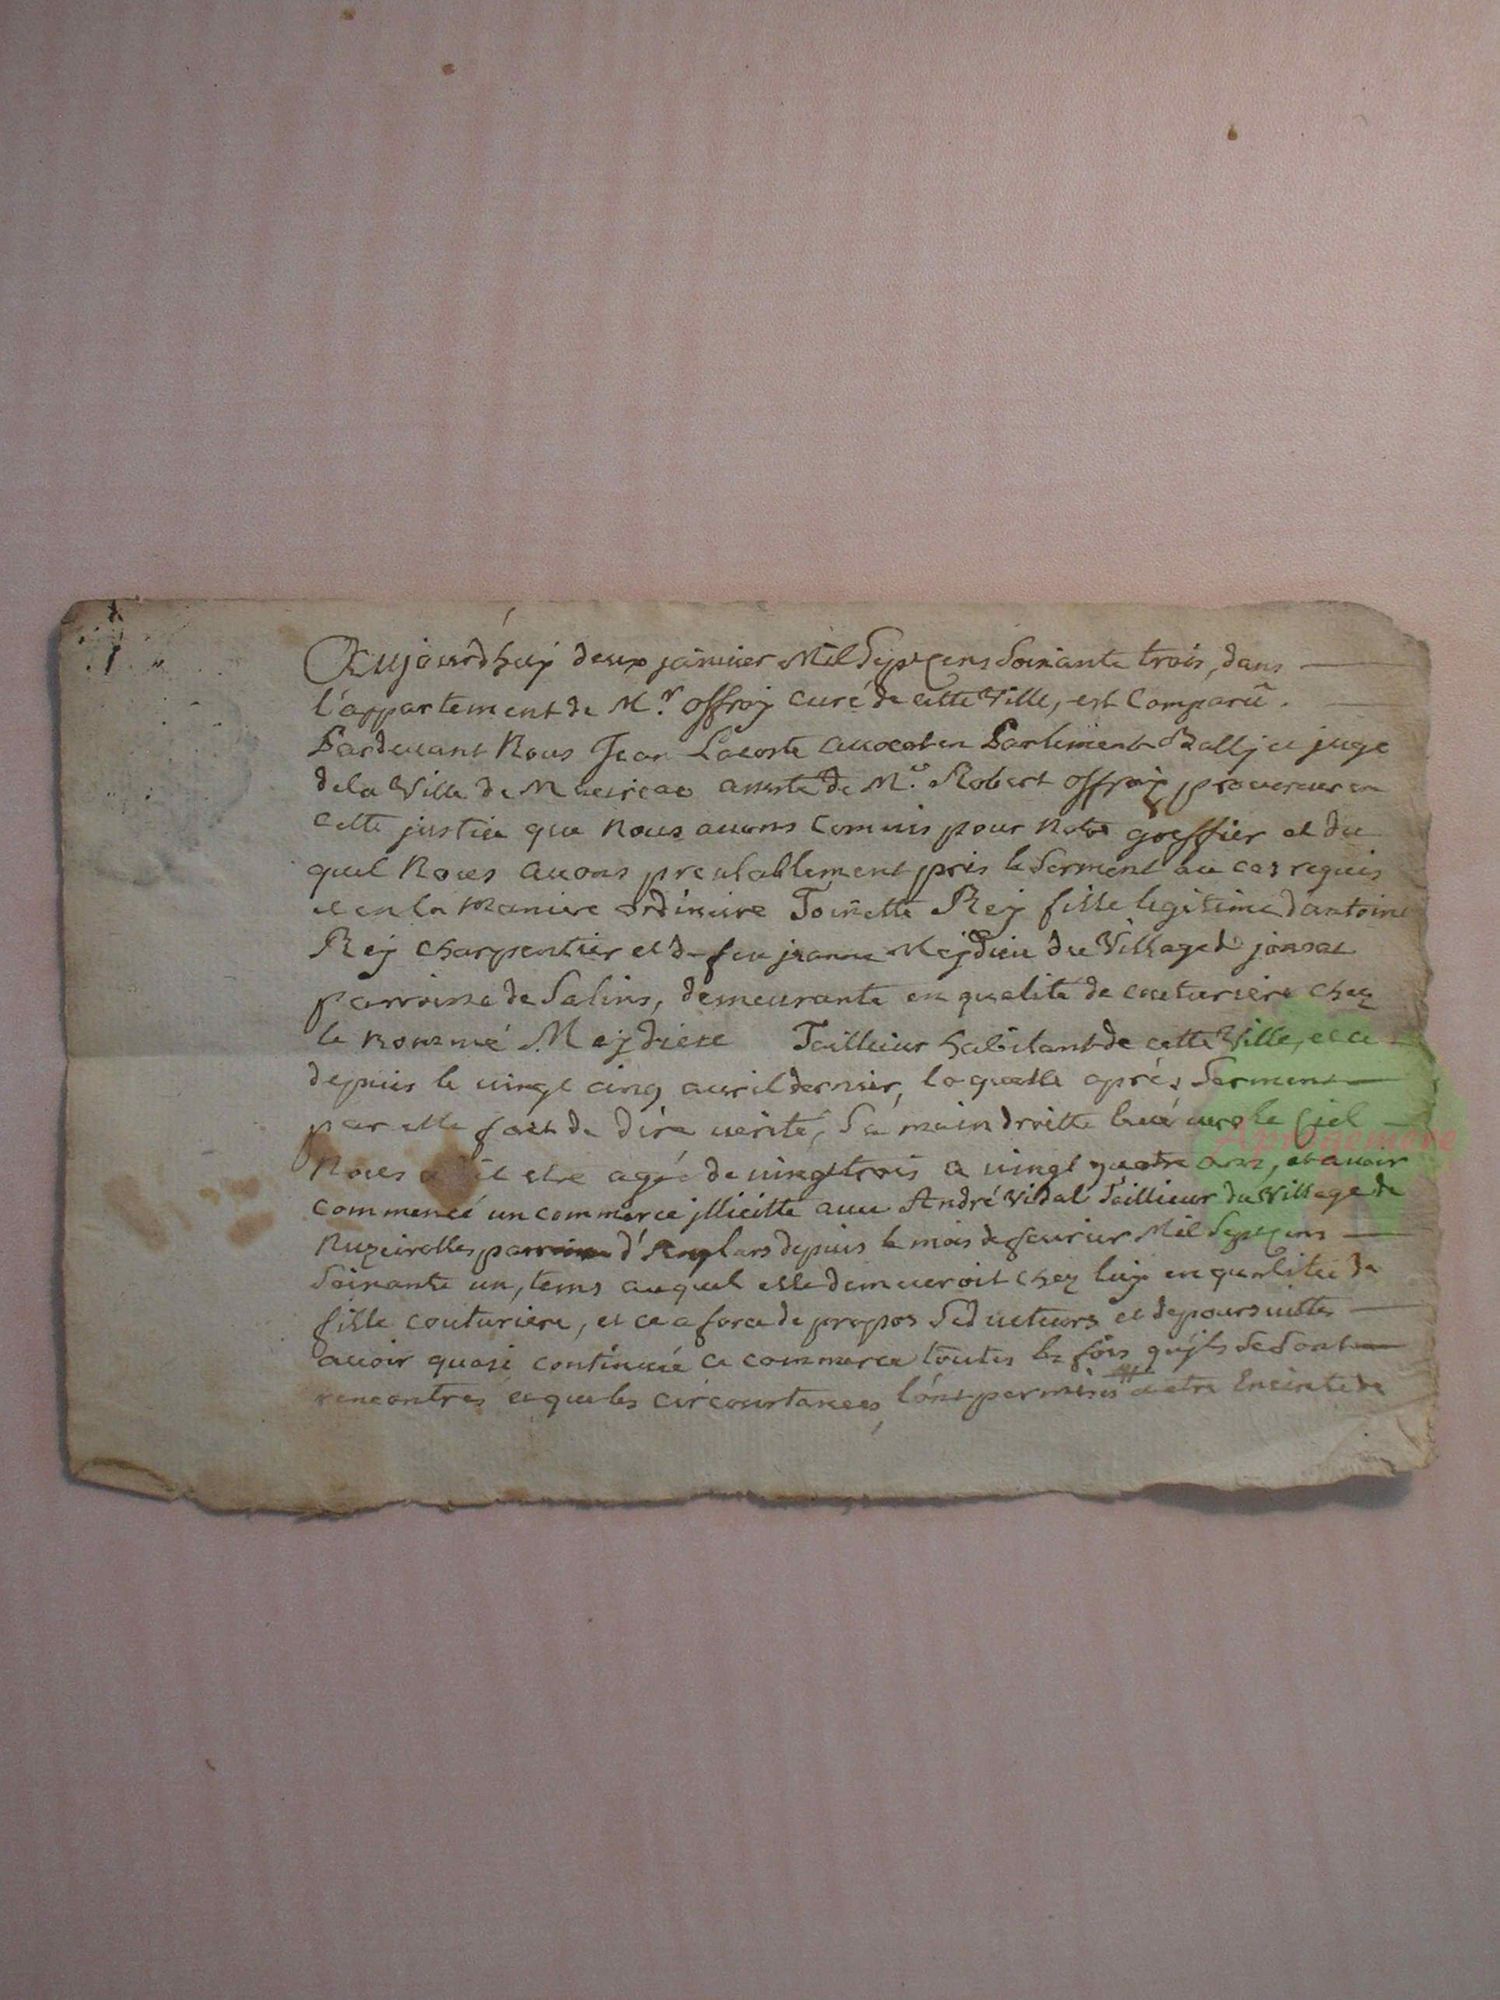 Aujourd'huy deux janvier Mil Sept Cens Soixante trois, dans
l'appartement de Mr. offroy curé de cette Ville, est Comparû
Pardevant Nous Jean Lacoste avocat en Parlement Bally et juge
dela Ville de assisté de Me. Robert offroy procureur en
cette justice que Nous avons Commis pour Notre greffier et du
quel Nous avons prealablement pris le Serment au cas requis
et en la Maniere ordinaire Toinette Rey fille legitime d'antoine
Rey charpentier et de feu jeanne Meydieu du Village de jonsac
parroisse de Salins, demeurante en qualité de couturiere chez
le nommé Meydieu Tailleur habitant de cette Ville, et ce
depuis le vingt cinq avril dernier, laquelle aprés Serment
par elle fait de dire verité, Sa main droitte levée vers le Ciel
Nous a dit etre agée de vingt trois a vingt quatre ans, et avoir
commencé un commerce jllicitte avec André Vidal Taillieur du Village de
Nuzeirolles parroisse d'Anglars depuis le mois de fevrier Mil Sept Cens
Soixante un, tems auquel elle demeuroit chez luy en qualitée de
fille couturiere, et ce a force de propos Seducteurs et de poursuittes
avoir quasi continué ce commerce toutes les fois qu'jls se sont
rencontres et que les circonstances l'ont permises # et etre Enceinte de
Aprogemere